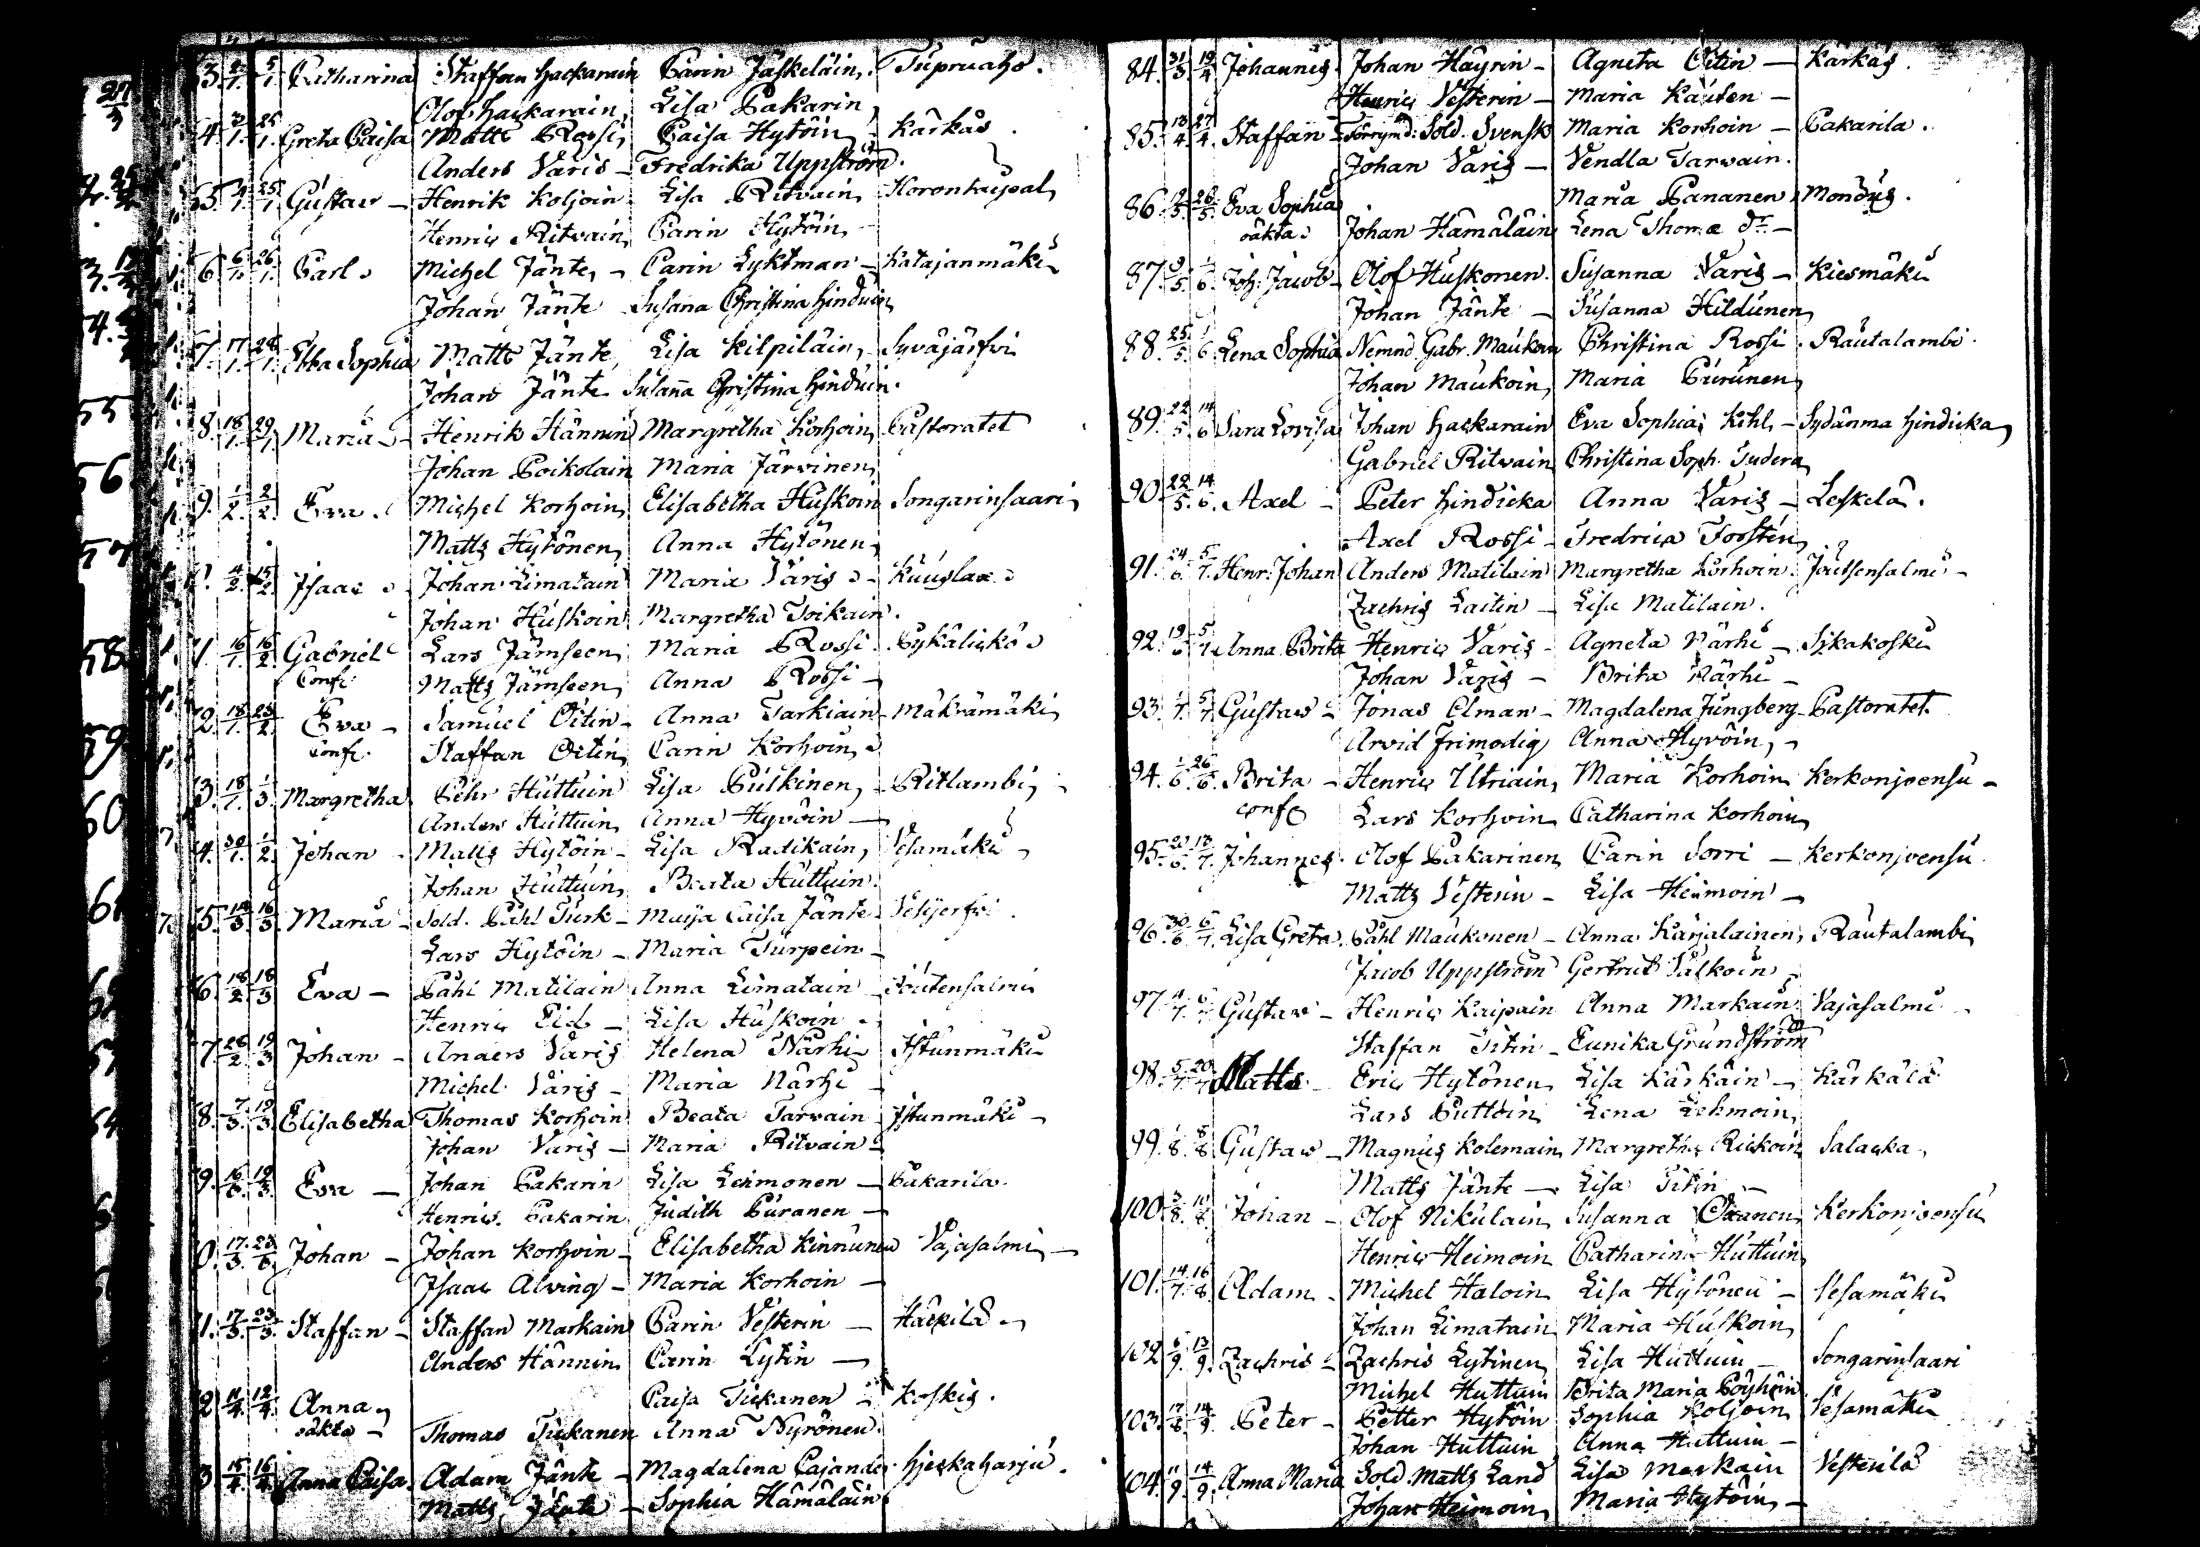 3. 2/1. 5/1. Catharina Staffan Hackarain Carin Jäskeläin, Tupruaho.
Olof Hackarain, Lisa Pakarin,
4. 3/1. 25/1. Greta Caisa Matts Rossi, Caisa Hytöin, Kärkäs.
Anders Varis – Fredrika Uppström.
5. 4/1. 25/1. Gustav – Henrik Koljoin Lisa Ritvain, Korontaipal,
Henric Ritvain, Carin Hytöin, –
6. 6/1. 26/1. Carl Michel Jänte, – Carin Lyktman – Katajanmäki
Johan Jänte Susana Christina Hinduin,
7. 17/1. 28/1. Ebba Sophia Matts Jänte, Lisa Kilpiläin, Syväjärfvi
Johan Jänte Susana Christina Hinduin.
8. 18/1. 29/1. Maria – Henrik Hännin Margretha Korhoin, Pastoratet
Johan Poikolain Maria Järvinen,
9. 1/2. 2/2. Eva. Michel Korhoin, Elisabetha Huskoin Songarinsaari,
Matts Hytönen, Anna Hytönen,
4/2. 15/2. Isaac Johan Limatain Maria Varis – Kuuslax.
Johan Huskoin Margretha Toikain.
1. 16/1. 16/2. Gabriel Lars Jämseen, Maria Rossi. Pykälickö
Conf: Matts Jämseen, Anna Rossi –
2. 18/1. 23/2. Eva – Samuel Oitin – Anna Tarkiain – Mäkrämäki,
Conf: Staffan Oitin, Carin Korhoin,
3. 18/1. 1/3. Margretha Pehr Huttuin Lisa Pulkinen, – Ritlambi,
Anders Huttuin, Anna Hyvöin –
4. 30/1. 1/2. Johan Matts Hytöin – Lisa Radikain, Vesamäki –
Johan Huttuin, Beata Huttuin.
5. 14/3. 16/3. Maria – Sold. Påhl Turk – Maija Caisa Jänte – Vesijerfvi.
Lars Hytöin – Maria Turpein –
6. 18/2. 18/3. Eva – Påhl Matilain Anna Limatain – Joutensalmi
Henric Eld – Lisa Huskoin
7. 28/2. 19/3. Johan – Anders Varis Helena Närhi – Istunmäki
Michel Varis – Maria Närhi –
8. 7/3. 19/3. Elisabetha Thomas Korhoin Beata Tarvain – Istunmäki –
Johan Varis – Maria Ritvain –
9. 16/3. 19/3. Eva – Johan Pakarin Lisa Lehmonen – Pakarila.
Henric Pakarin Judith Puranen –
0. 17/3. 23/3. Johan – Johan Korhoin – Elisabetha Kinnunen Vajasalmi, –
Isaac Alving – Maria Korhoin –
1. 17/3. 23/3. Staffan – Staffan Markain Carin Vesterin – Häckilä
Anders Hännin, Carin Lytin –
2. 11/4. 12/4. Anna, Caisa Tickanen – Koskis.
oäkta – Thomas Tickanen Anna Byrönen.
3. 15/4. 16/4. Anna Caisa. Adam Jänte – Magdalena Cajander Hjeskaharju.
Matts Jänte – Sophia Hämäläin
84. 31/3 19/4 Johannes Johan Häyrin – Agneta Oitin – Kärkäs.
Henric Vesterin – Maria Kauten –
85. 18/4. 27/4. Staffan – Sold. Svensk Maria Korhoin – Pakarila.
Johan Varis – Vendla Tarvain.
86. 9/5. 26/5. Eva Sophia Maria Pananen, Mondus.
oäkta Johan Hämäläin Lena Thomæ dr. –
87. 9/5. 1/6. Joh: Jacob – Olof Huskonen. Susanna Varis – Kiesmäki
Johan Jänte – Susanna Hildunen,
88. 25/5. 1/6. Lena Sophia Nemnd: Gabr. Maukoin Christina Rossi. Rautalambi.
Johan Maukoin, Maria Purunen,
89. 22/5. 14/6 Sara Lovisa Johan Hackarain Eva Sophia Kihl, – Sydänma Hindicka,
Gabriel Ritvain Christina Soph. Tudera
90. 22/5. 14/6. Axel – Peter Hindicka Anna Varis – Leskelä.
Axel Rossi – Fredrica Forstén,
91. 24/6. 5/7. Henr: Johan Anders Matilain Margretha Korhoin. Joutsensalmi –
Zachris Laitin – Lisa Matilain.
92. 19/6 5/7. Anna Brita Henric Varis – Agneta Närhi – Sikakoski
Johan Varis – Brita Närhi –
93. 1/7. 5/7. Gustav – Jonas Elman – Magdalena Jungberg – Pastoratet.
Arvid Frimodig, Anna Hyvöin, –
94. 1/6. 26/6. Brita – Henric Utriain, Maria Korhoin Kerkonjoensu –
conf. Lars Korhoin Catharina Korhoin,
95. 20/6. 13/7. Johannes. Olof Pakarinen, Carin Sorri – Kerkonjoensu.
Matts Vesterin – Lisa Heimoin –
96. 30/6. 6/7. Lisa Greta. Påhl Maukonen – Anna Karjalainen, Rautalambi,
Jacob Uppström Gertrut Palkoin
97. 4/7. 6/7. Gustav – Henric Kaipain Anna Markain Vajasalmi –
Staffan Titin – Eunika Grundström
98. 5/7. 20/7. Matts. – Eric Hytönen, Lisa Kärkäin – Kärkälä
Lars Puttöin Lena Lehmoin,
99. 1/8. 8/8. Gustav – Magnus Kolemain, Margretha Rickoin, Salacka,
Matts Jänte – Lisa Titin –
100. 3/8. 10/8. Johan – Olof Nikulain, Susanna Oranen, Kerkonjoensu
Henric Heimoin Catharina Huttuin,
101. 14/7. 16/8. Adam – Michel Haloin, Lisa Hytönen – Vesamäki
Johan Limatain, Maria Huskoin,
102. 6/9. 13/9. Zachris – Zachris Lytinen, Lisa Huttuin – Songarinsaari
Michel Huttuin Brita Maria Pöyhöin
103. 17/8. 14/9. Peter – Petter Hytöin Sophia Koljoin, Vesamäki
Johan Huttuin Anna Huttuin –
104. 11/9. 14/9. Anna Maria Sold. Matts Land Lisa Markain Vesterilä
Johan Heimoin, Maria Hytöin, –